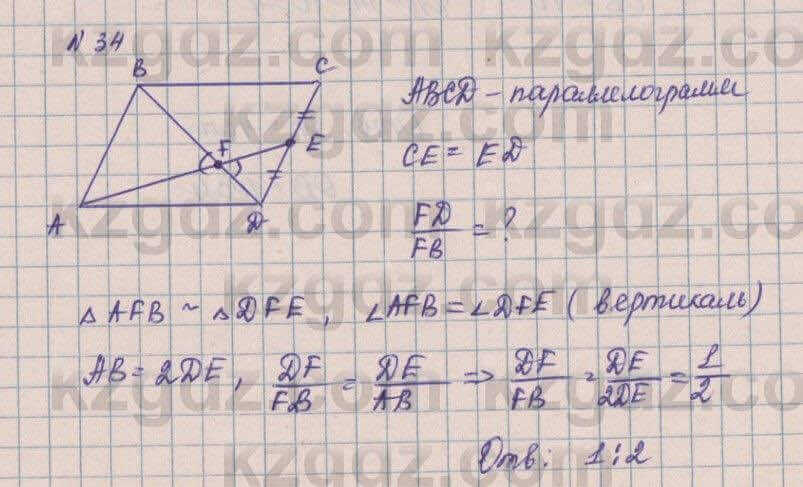 N 34
B C
F E
A D
ABCD - параллелограмм
CE = ED
FD/FB = ?
△AFB ~ △DFE, ∠AFB = ∠DFE (вертикаль)
AB = 2DE, DF/FB = DE/AB => DF/FB = DE/2DE = 1/2
Отв: 1:2
kzgdz.com